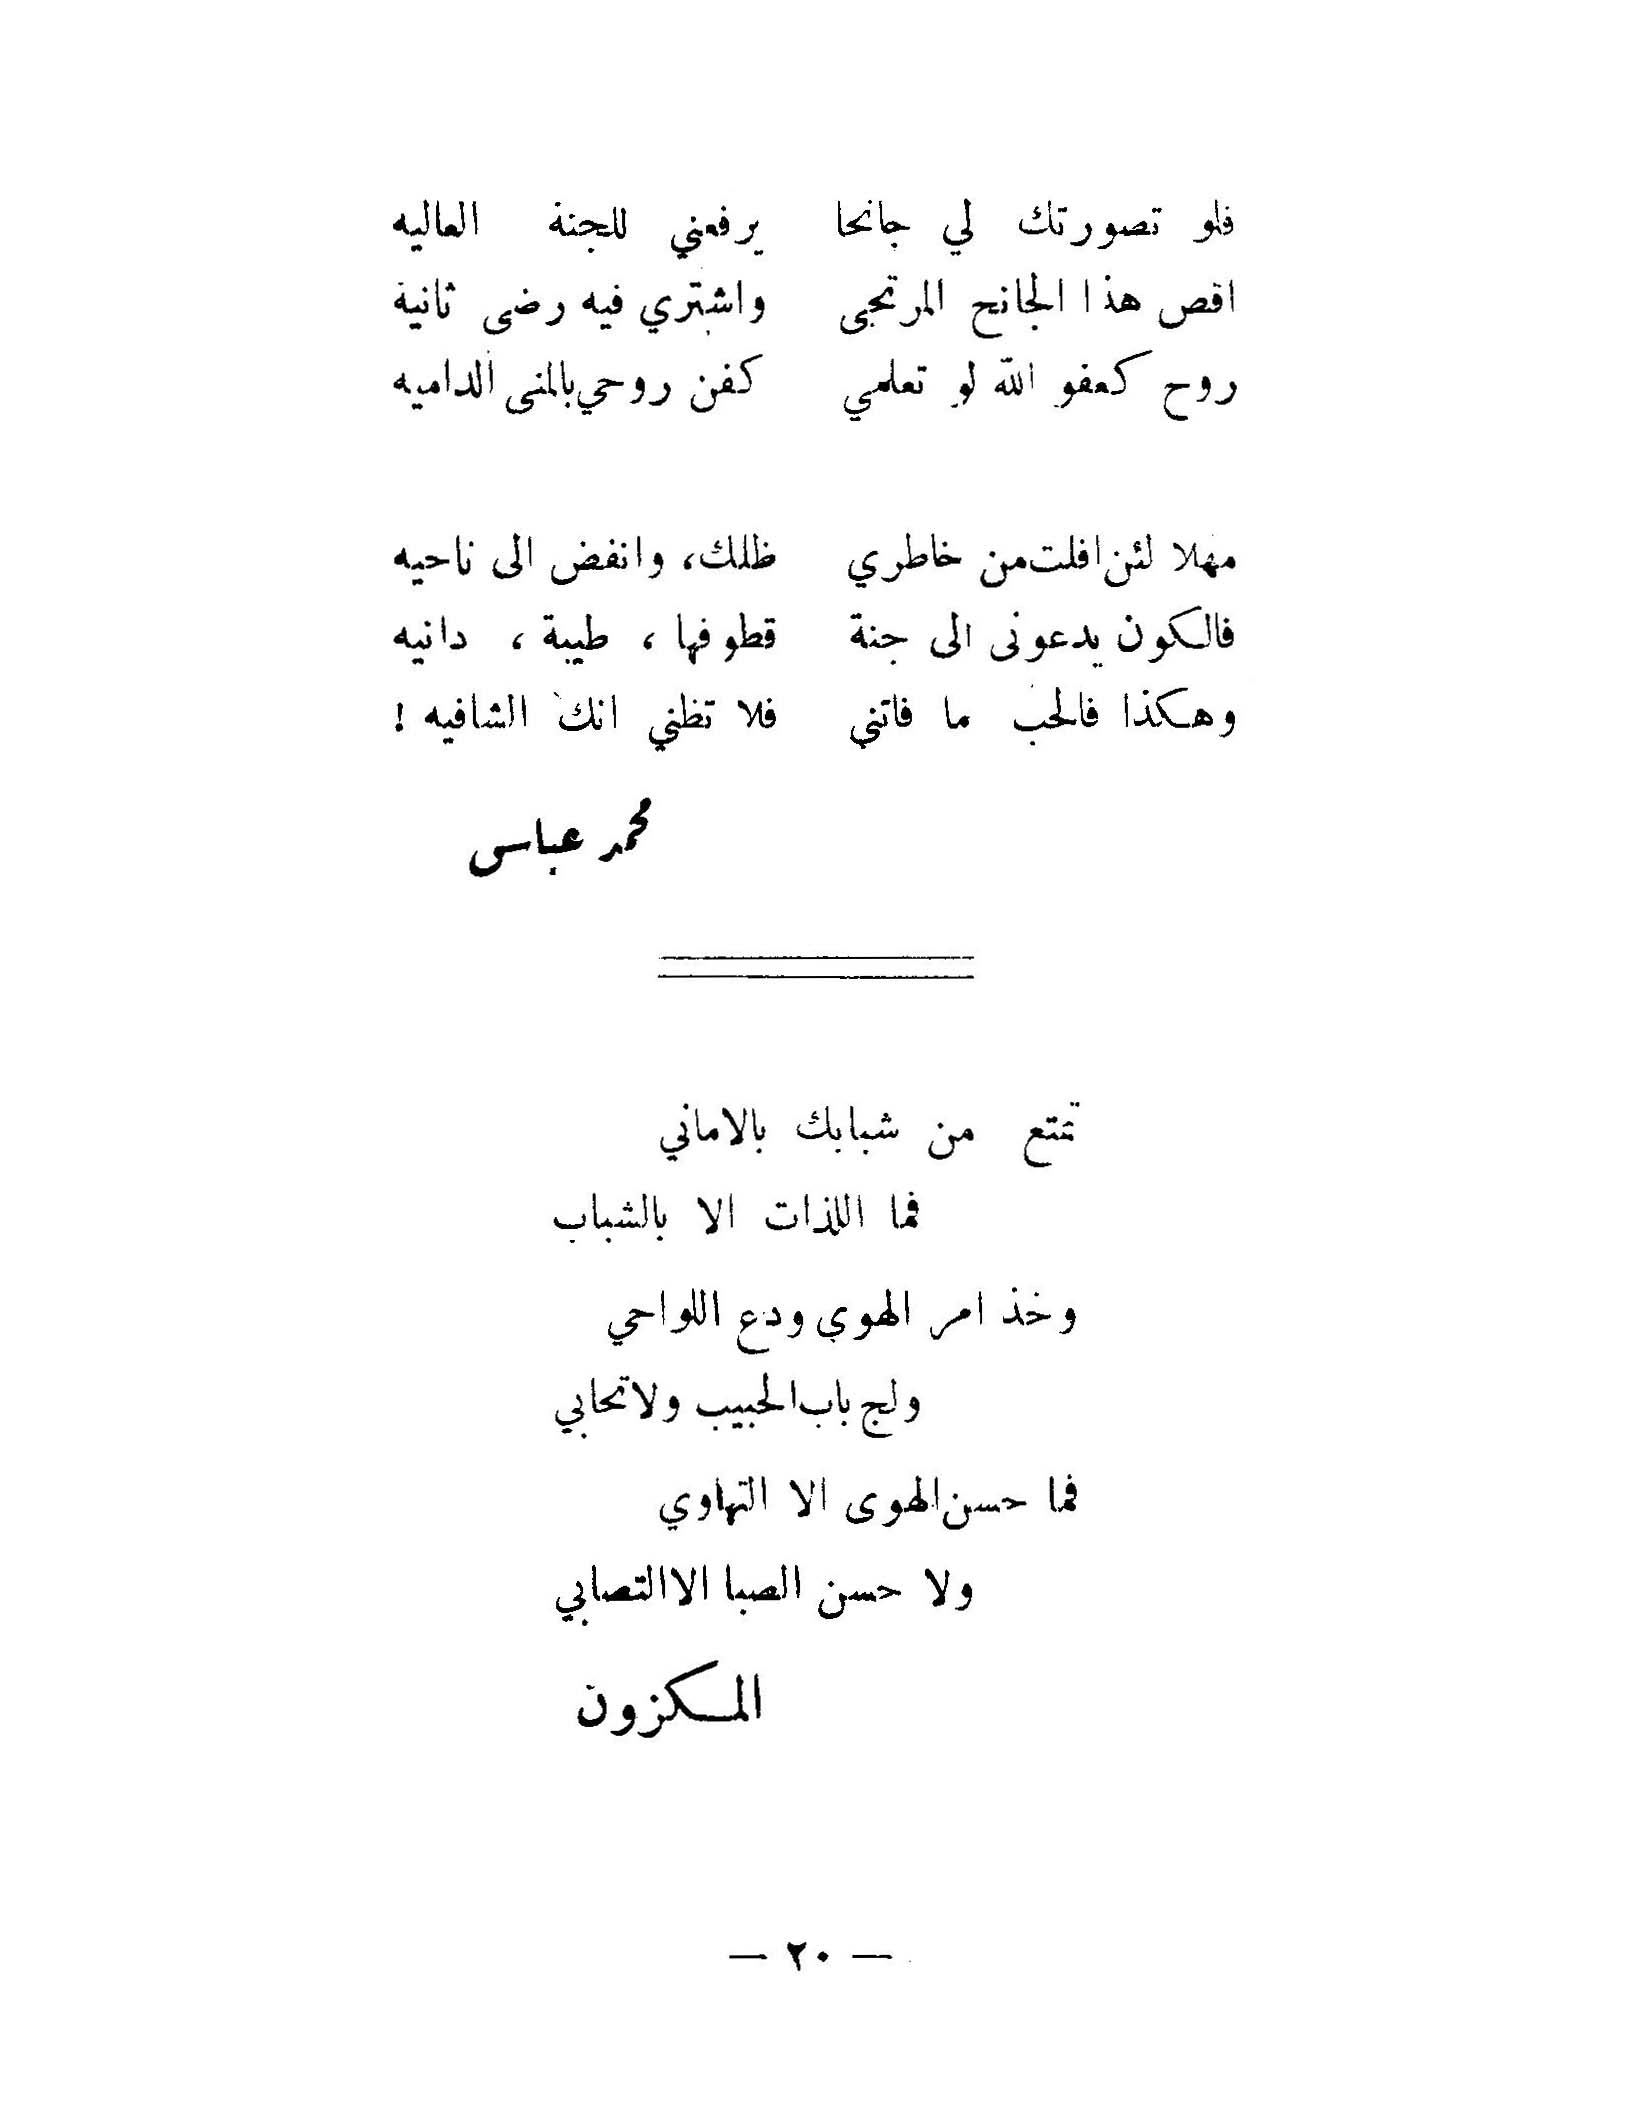 فلو تصورتك لي جانحا يرفعني للجنة العاليه
اقص هذا الجانح المرتجى واشتري فيه رضى ثانية
روح كعفو الله لو تعلمي كفن روحي بالمنى الداميه
مهلا لئن افلت من خاطري ظلك، وانفض الى ناحيه
فالكون يدعونى الى جنة قطوفها، طيبة، دانيه
وهكذا فالحب ما فاتني فلا تظني انك الشافيه!
محمد عباس
تمتع من شبابك بالاماني
فما اللذات الا بالشباب
وخذ امر الهوى ودع اللواحي
ولج باب الحبيب ولا تحابي
فما حسن الهوى الا التهاوي
ولا حسن الصبا الا التصابي
المكزون
— ٢٠ —